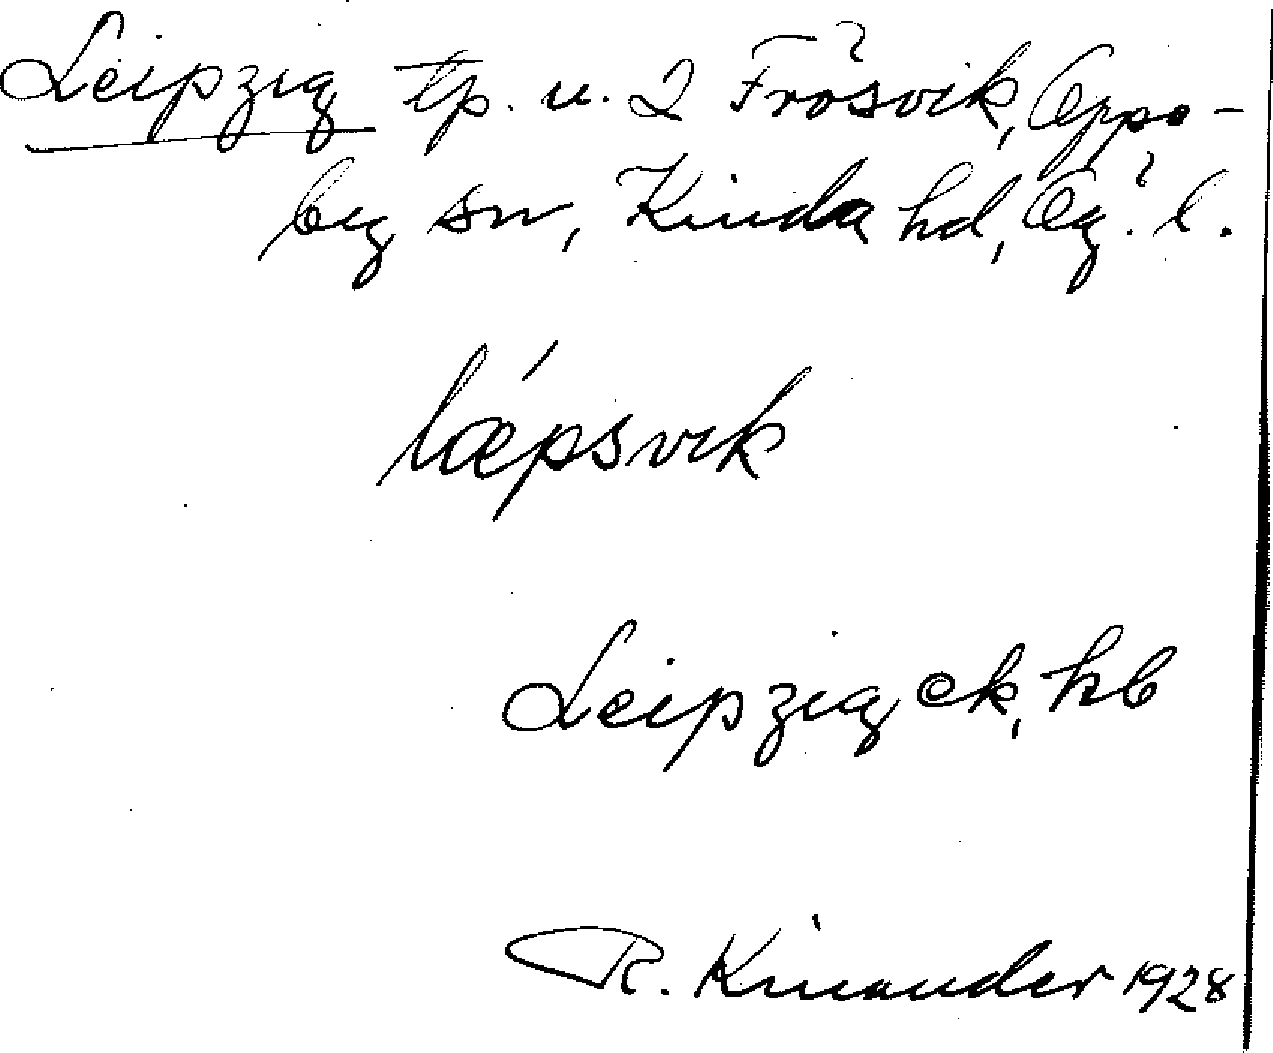 Leipzig tp. u. 2 Frösvik, Oppe-
by sn, Kinda hd, Ög. l.
lǽpsvik
Leipzig ek, hb
R. Kinander 1928